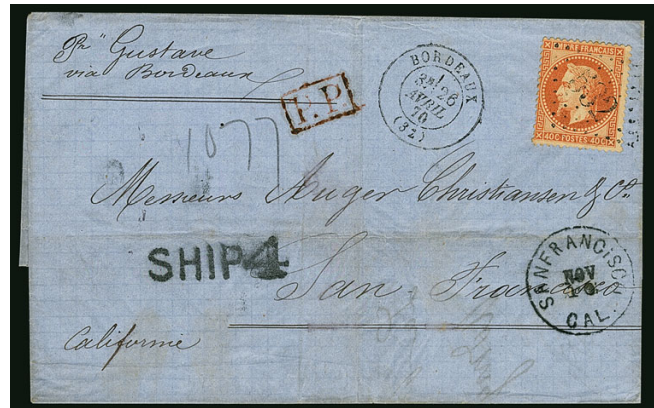 Pr Gustave
via Bordeaux
P.P.
BORDEAUX
26
AVRIL
70
(32)
EMPIRE FRANÇAIS
40C POSTES 40C
1077
Messieurs Auger Christiansen & Co.
SHIP 4
San Francisco
SAN FRANCISCO
NOV
CAL.
Californie